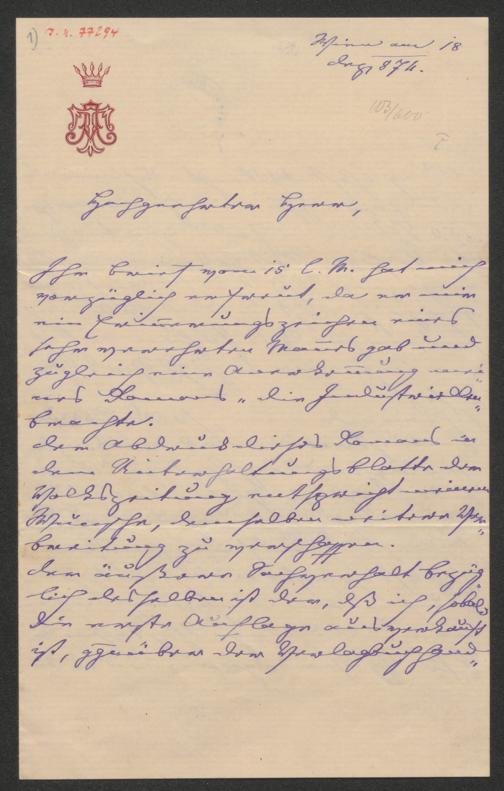 1) J. N. 77294
Wien am 18
Dez. 874.
103/600
Hochgeehrter Herr,
Ihr Brief vom 15 l. M. hat mich
vorzüglich erfreut, da er mir
ein Erinnerungszeichen eines
sehr verehrten Mannes gab und
zugleich eine Anerkennung mei
nes Romans „die Industriellen"
brachte.
Der Abdruck dieses Romans in
dem Unterhaltungsblatte der
Volkszeitung entspricht meinem
Wunsche, demselben weitere Ver„
breitung zu verschaffen.
Der äußere Sachverhalt bezüg
lich desselben ist der, dß ich, sobald
die erste Auflage ausverkauft
ist, ggenüber der Verlagsbuchhand„